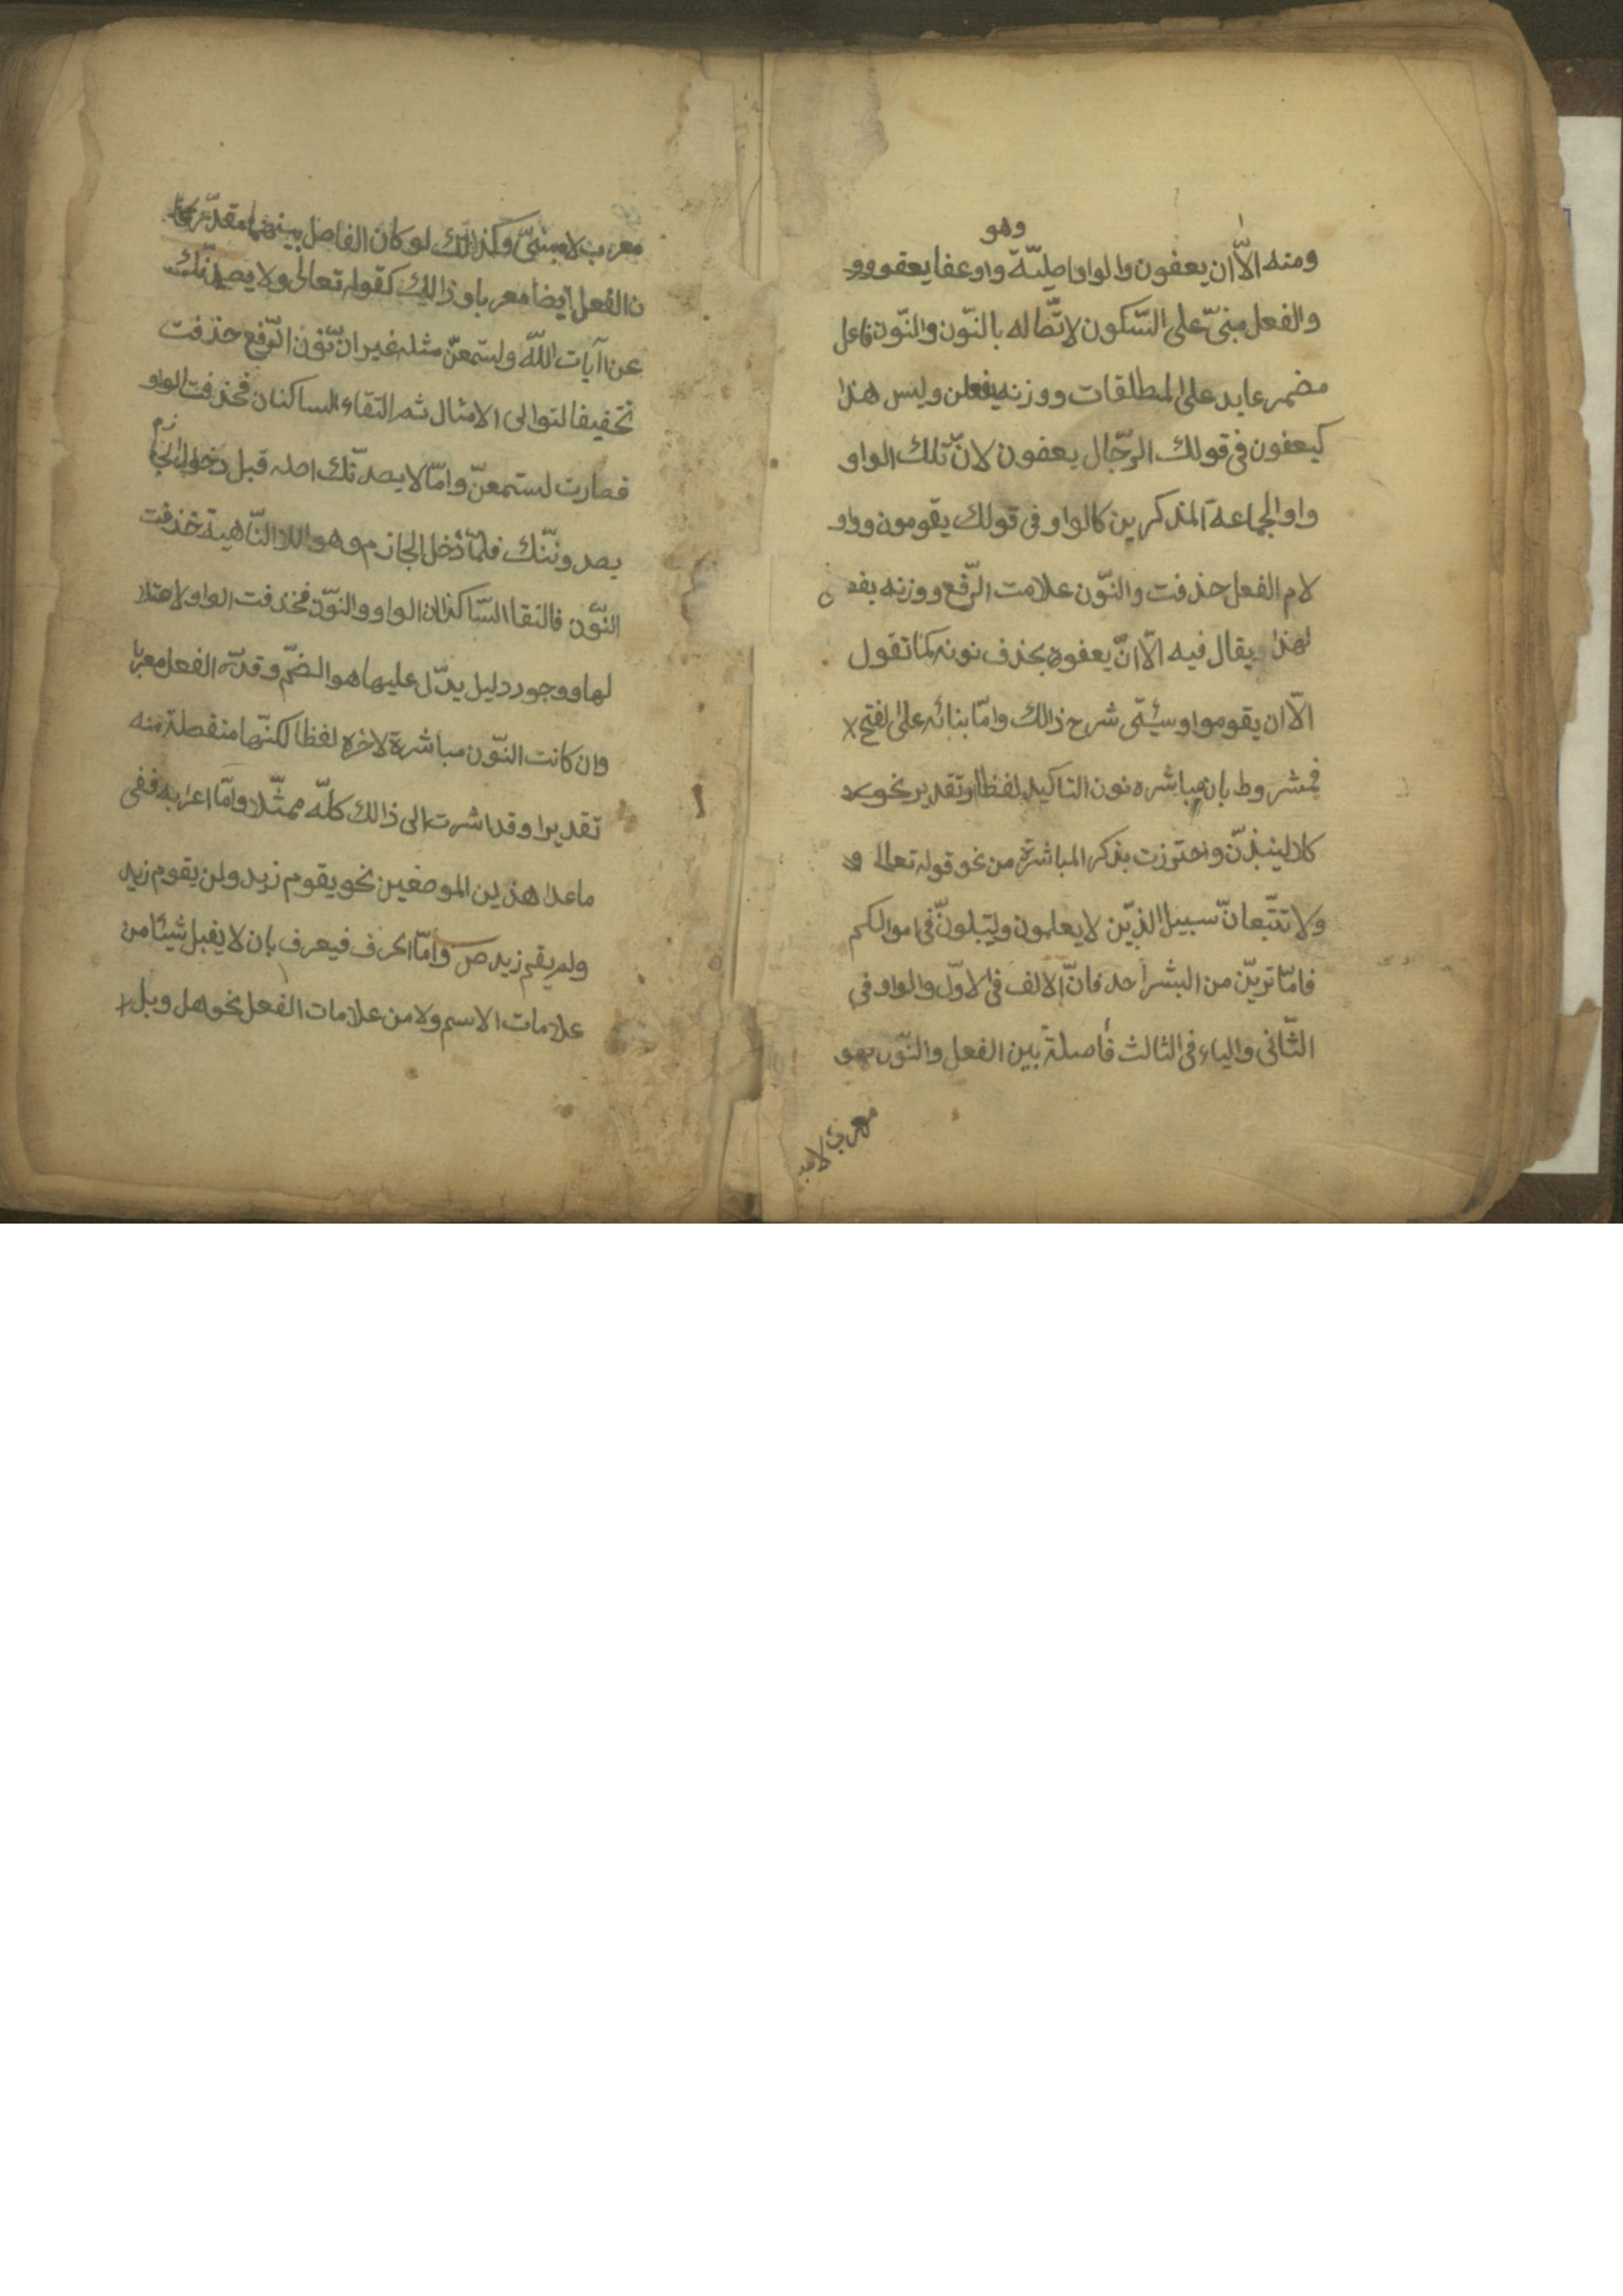 وهو
ومنه الّا ان يعفون والواو اصليّة واو عفا يعفو وو
والفعل مبنىّ على السّكون لاتّصاله بالنّون والنّون فاعل
مضمر عايد على المطلقات ووزنه يفعلن وليس هذا
كيعفون فى قولك الرّجال يعفون لانّ تلك الواو
واو الجماعة المذكرين كالواو فى قولك يقومون وواو
لام الفعل حذفت والنّون علامت الرّفع ووزنه يفعو ن
لهذا يقال فيه الّا انّ يعفوا بحذف نونه كما تقول
الّا ان يقوموا وسيئتى شرح ذالك وامّا بنائه على الفتح
فمشروط بان مباشره نون التاكيد لفظا وتقدير نحو
كلا لينبذنّ واحترزت بذكر المباشرة من نحو قوله تعالى و
ولا تتّبعانّ سبيل الذيّن لا يعلمون ولتبلونّ فى اموالكم
فامّا تريّن من البشر احد فانّ الالف فى الاوّل والواو فى
الثّانى والياء فى الثالث فاصلة بين الفعل والنّون فهو
معرب لا مبنـ
معرب لا مبنىّ وكذالك لو كان الفاصل بينهما مقدّر كا
ن الفعل ايضا معربا وذالك كقوله تعالى ولا يصدنّك
عن اآيات اللّه ولتسمعنّ مثله غير انّ نّون الرّفع حذفت
تخفيفا لتوالى الامثال ثم التقاء الساكنان فحذفت الواو
فصارت لستمعنّ وامّا لا يصدّنّك اصله قبل دخول الجازم
يصدوننّك فلمّا دخل الجازم وهو اللا النّاهية حذفت
النّون فالتقا السّاكنان الواو والنّون فحذفت الواو لاعتلا
لها ووجود دليل يدّل عليها هو الضمّ وقدّر الفعل معربا
وان كانت النّون مباشرة لاخره لفظا لكنّها منفصلة منه
تقديرا وقد اشرت الى ذالك كلّه ممثّلا وامّا اعرابه ففى
ما عدا هذين الموضعين نحو يقوم زيد ولن يقوم زيد
ولم يقم زيد ص وامّا الحرف فيعرف بان لا يقبل شيئا من
علامات الاسم ولا من علامات الفعل نحو هل وبل